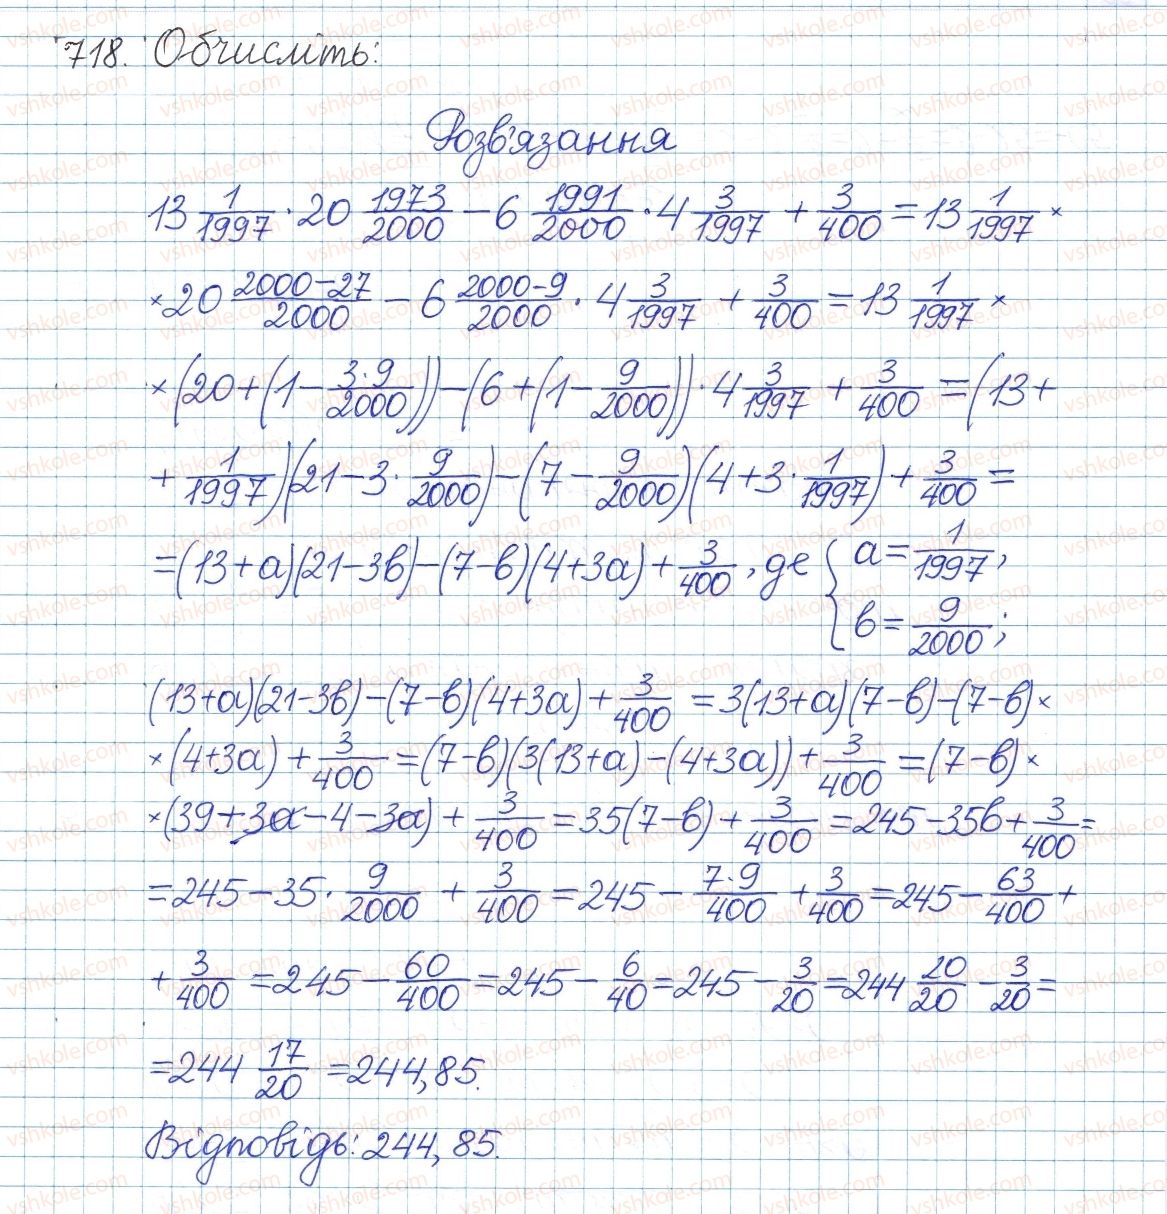 718. Обчисліть:
Розв'язання
13 1/1997 · 20 1973/2000 − 6 1991/2000 · 4 3/1997 + 3/400 = 13 1/1997 ×
× 20 (2000−27)/2000 − 6 (2000−9)/2000 · 4 3/1997 + 3/400 = 13 1/1997 ×
× (20 + (1 − 3·9/2000)) − (6 + (1 − 9/2000)) · 4 3/1997 + 3/400 = (13 +
+ 1/1997)(21 − 3 · 9/2000) − (7 − 9/2000)(4 + 3 · 1/1997) + 3/400 =
= (13 + a)(21 − 3в) − (7 − в)(4 + 3a) + 3/400, де { a = 1/1997,
в = 9/2000;
(13 + a)(21 − 3в) − (7 − в)(4 + 3a) + 3/400 = 3(13 + a)(7 − в) − (7 − в) ×
× (4 + 3a) + 3/400 = (7 − в)(3(13 + a) − (4 + 3a)) + 3/400 = (7 − в) ×
× (39 + 3a − 4 − 3a) + 3/400 = 35(7 − в) + 3/400 = 245 − 35в + 3/400 =
= 245 − 35 · 9/2000 + 3/400 = 245 − 7·9/400 + 3/400 = 245 − 63/400 +
+ 3/400 = 245 − 60/400 = 245 − 6/40 = 245 − 3/20 = 244 20/20 − 3/20 =
= 244 17/20 = 244,85.
Відповідь: 244,85.